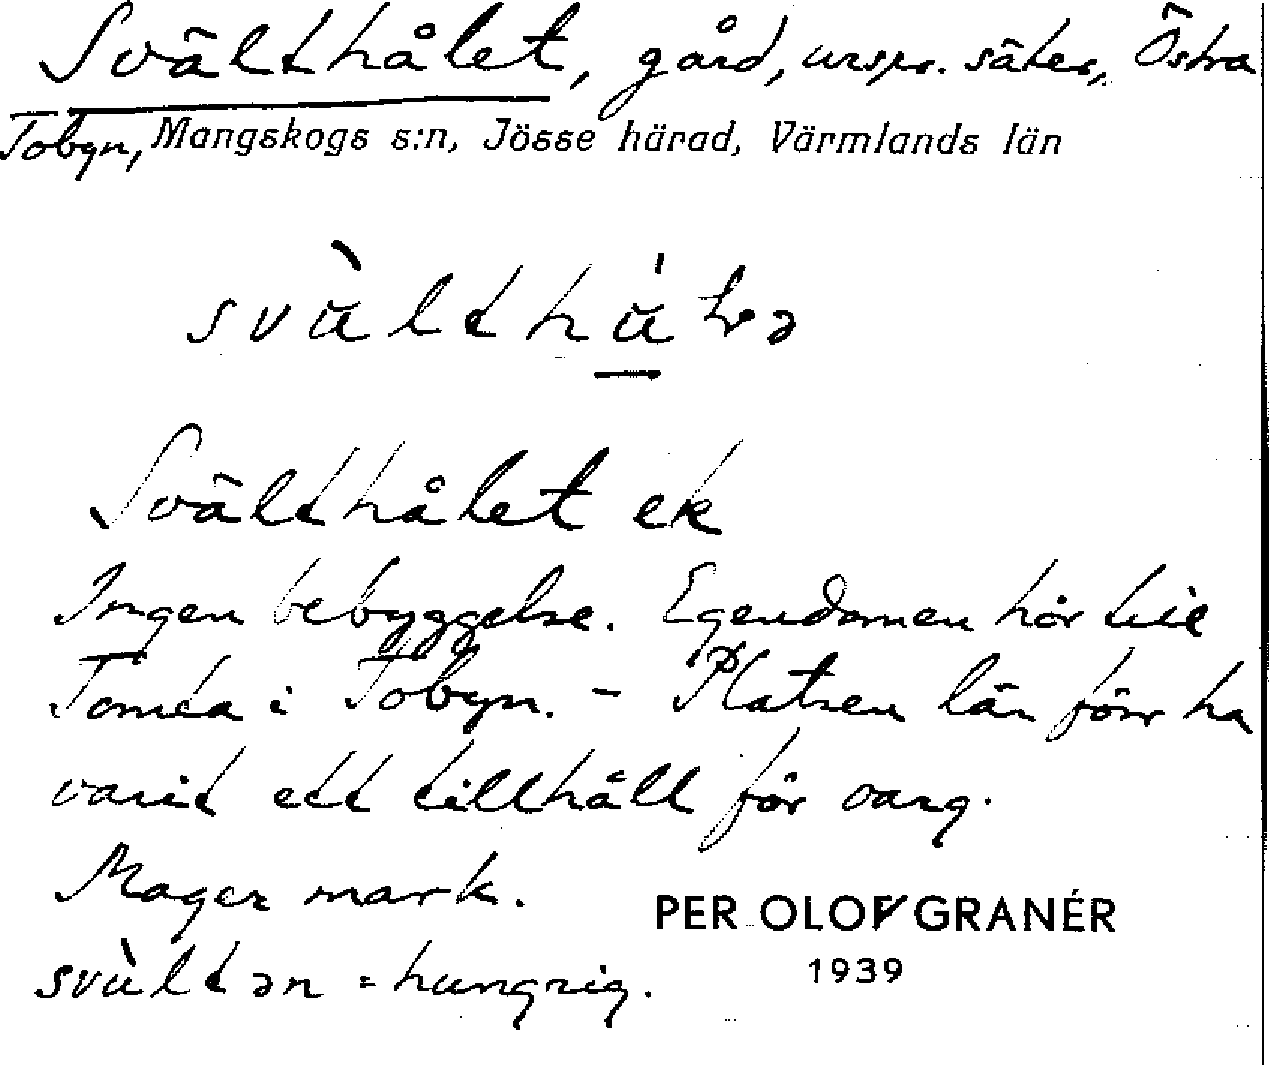 Svälthålet, gård, urspr. säter, Östra
Tobyn, Mangskogs s:n, Jösse härad, Värmlands län
Svälthålet ek
Ingen bebyggelse. Egendomen hör till
Toméa i Tobyn. – Platsen lär förr ha
varit ett tillhåll för varg.
Mager mark.
PER OLOF GRANÉR
1939
svàltən = hungrig.